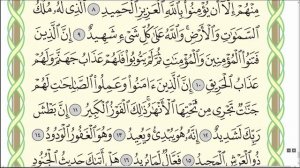 مِنْهُمْ إِلَّا أَن يُؤْمِنُوا۟ بِٱللَّهِ ٱلْعَزِيزِ ٱلْحَمِيدِ ٨ ٱلَّذِى لَهُۥ مُلْكُ
ٱلسَّمَٰوَٰتِ وَٱلْأَرْضِ وَٱللَّهُ عَلَىٰ كُلِّ شَىْءٍ شَهِيدٌ ٩ إِنَّ ٱلَّذِينَ
فَتَنُوا۟ ٱلْمُؤْمِنِينَ وَٱلْمُؤْمِنَٰتِ ثُمَّ لَمْ يَتُوبُوا۟ فَلَهُمْ عَذَابُ جَهَنَّمَ وَلَهُمْ
عَذَابُ ٱلْحَرِيقِ ١٠ إِنَّ ٱلَّذِينَ ءَامَنُوا۟ وَعَمِلُوا۟ ٱلصَّٰلِحَٰتِ لَهُمْ
جَنَّٰتٌ تَجْرِى مِن تَحْتِهَا ٱلْأَنْهَٰرُ ذَٰلِكَ ٱلْفَوْزُ ٱلْكَبِيرُ ١١ إِنَّ بَطْشَ
رَبِّكَ لَشَدِيدٌ ١٢ إِنَّهُۥ هُوَ يُبْدِئُ وَيُعِيدُ ١٣ وَهُوَ ٱلْغَفُورُ ٱلْوَدُودُ ١٤
ذُو ٱلْعَرْشِ ٱلْمَجِيدُ ١٥ فَعَّالٌ لِّمَا يُرِيدُ ١٦ هَلْ أَتَىٰكَ حَدِيثُ ٱلْجُنُودِ